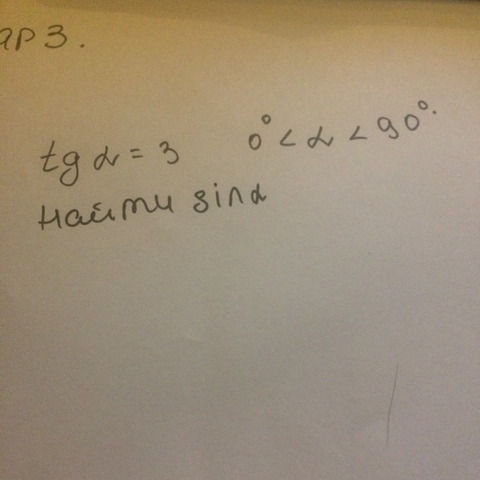 ар 3.
tg α = 3 0° < α < 90°.
найти sinα